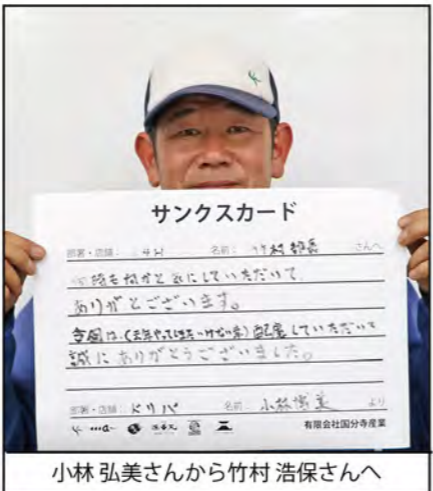 サンクスカード
部署・店舗： 名前： 竹村 さんへ
何かと気にしていただいて
ありがとございます。
今回は、(去年やってはいけない事) 配慮していただいて
誠にありがとうございました。
部署・店舗：ドリバ 名前：小林弘美 より
有限会社国分寺産業
小林 弘美さんから竹村 浩保さんへ